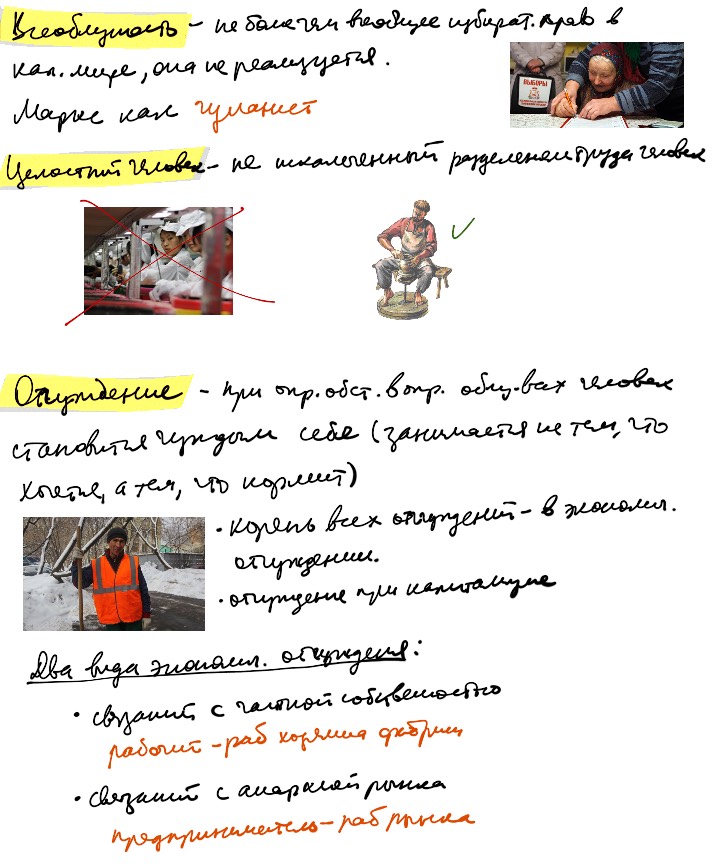 Всеобщность – не более чем всеобщее избират. право в
кап. мире, она не реализуется.
Маркс как гуманист
ВЫБОРЫ
Целостный человек – не искалеченный разделением труда человек
Отчуждение – при опр. обст. в опр. общ-вах человек
становится чуждым себе (занимается не тем, что
хочется, а тем, что кормит)
• корень всех отчуждений – в эконом.
отчуждении.
• отчуждение при капитализме
Два вида эконом. отчуждения:
• связанный с частной собственностью
рабочий – раб хозяина фабрики
• связанный с анархией рынка
предприниматель – раб рынка